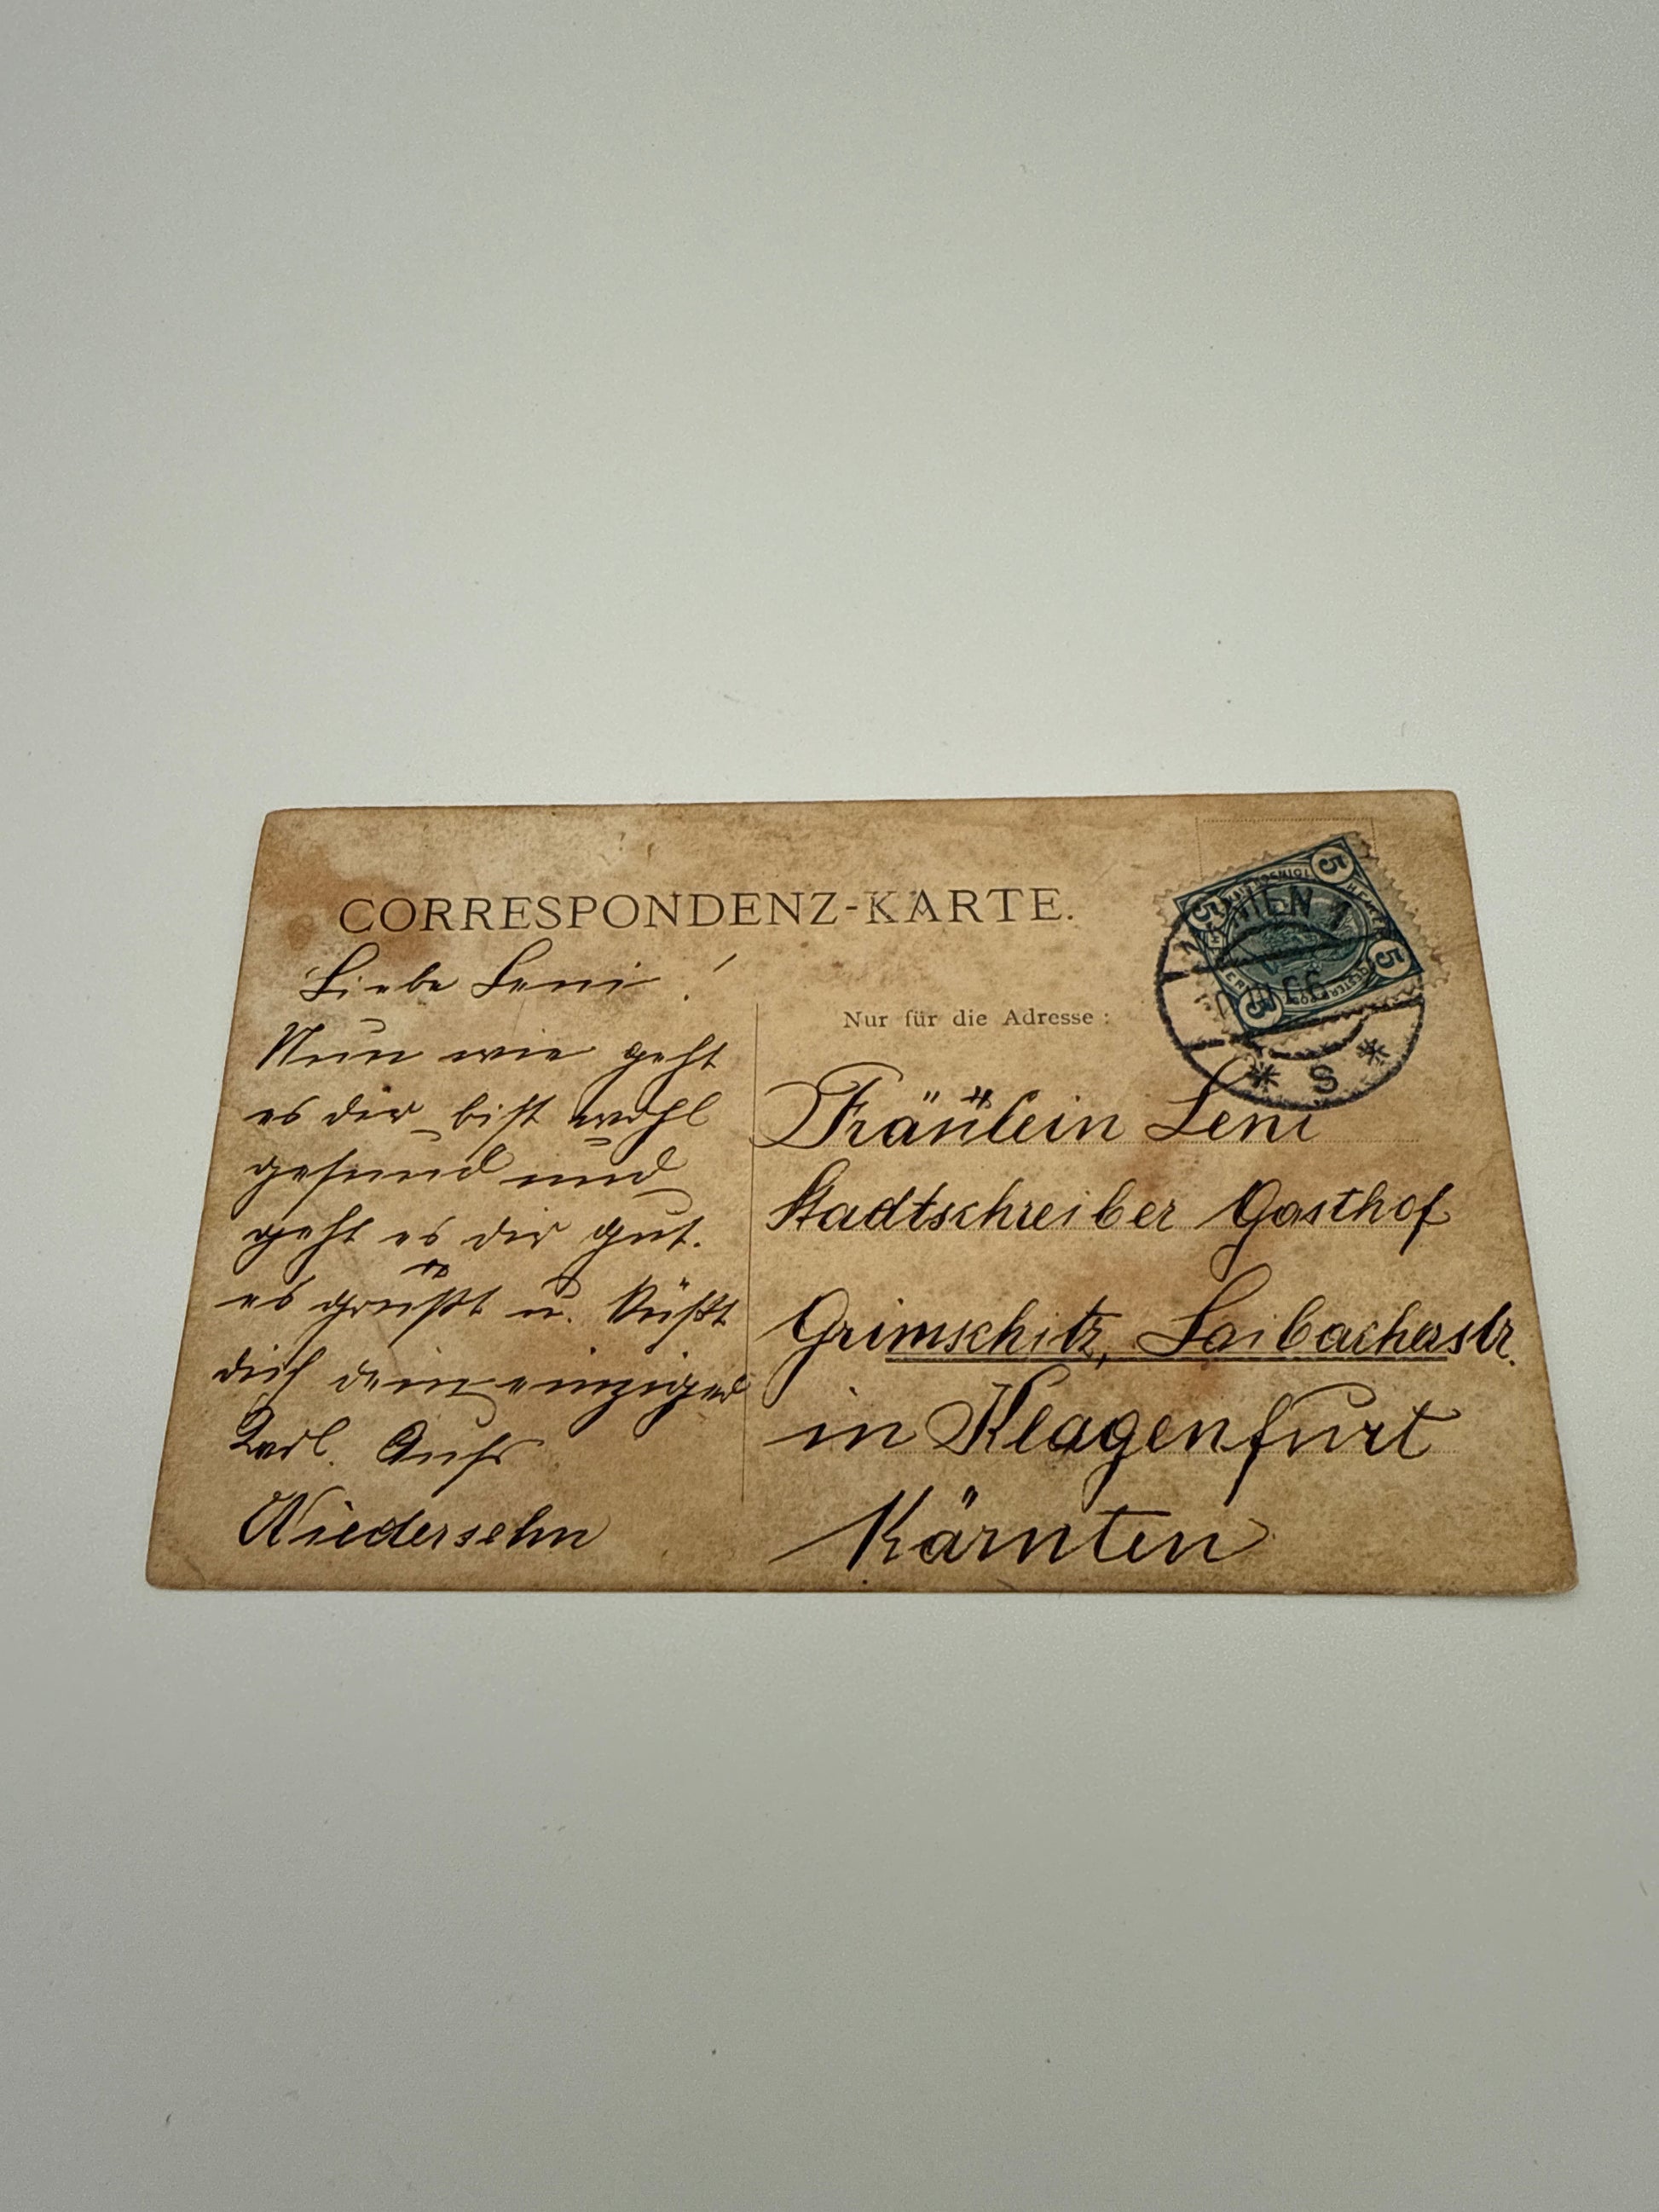 CORRESPONDENZ-KARTE.
Liebe Leni!
Nun wie geht
es dir bist wohl
gesund und
geht es dir gut.
es grüßt u. küßt
dich dein einziger
Karl. Aufs
Wiedersehn
5
5
5
5
WIEN 1
* S *
Nur für die Adresse:
Fräulein Leni
Stadtschreiber Gasthof
Grimschitz, Laibacherstr.
in Klagenfurt
Kärnten